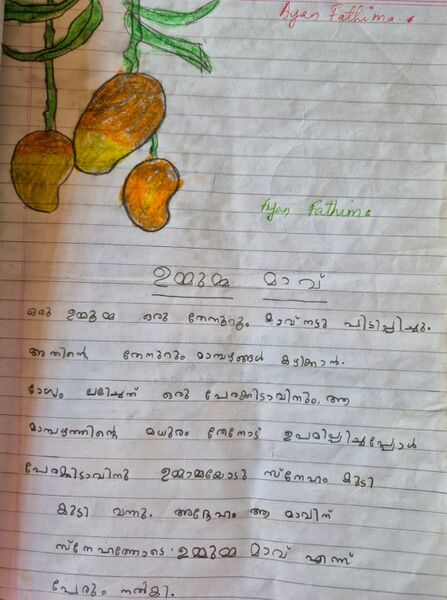 Ayan Fathima
Ayan Fathima
ഉമ്മുമ്മ മാവ്
ഒരു ഉമ്മൂമ്മ ഒരു തേനൂറും മാവ് നട്ടു പിടിപ്പിച്ചു.
അതിന്റെ തേനൂറും മാമ്പഴങ്ങൾ കഴിക്കാൻ.
ഭാഗ്യം ലഭിച്ചത് ഒരു പേരക്കിടാവിനും, ആ
മാമ്പഴത്തിന്റെ മധുരം തേനോട് ഉപമിപ്പിച്ചപ്പോൾ
പേരക്കിടാവിനു ഉമ്മാമ്മയോടു സ്നേഹം കൂടി
കൂടി വന്നു. അദ്ദേഹം ആ മാവിന്
സ്നേഹത്തോടെ ഉമ്മുമ്മ മാവ് എന്ന്
പേരും നൽകി.